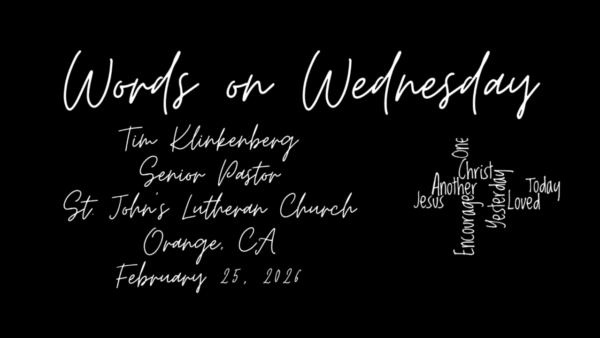 Words on Wednesday
Tim Klinkenberg
Senior Pastor
St. John's Lutheran Church
Orange, CA
February 25, 2026
One
Christ
Another
Today
Jesus
Loved
Encourage
Yesterday